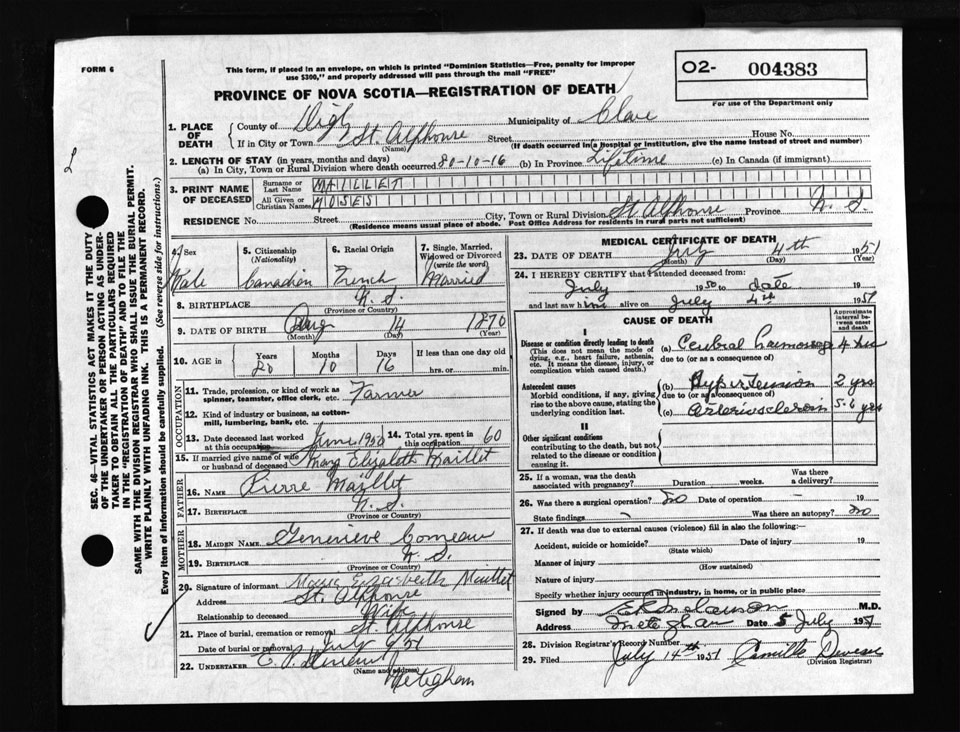 FORM 6
This form, if placed in an envelope, on which is printed "Dominion Statistics—Free, penalty for improper
use $300," and properly addressed will pass through the mail "FREE"
O2- 004383
For use of the Department only
PROVINCE OF NOVA SCOTIA—REGISTRATION OF DEATH
1. PLACE OF DEATH { County of Digby Municipality of Clare
If in City or Town St. Alphonse Street House No.
(Name) (If death occurred in a Hospital or Institution, give the name instead of street and number)
2. LENGTH OF STAY (in years, months and days)
(a) In City, Town or Rural Division where death occurred 80-10-16 (b) In Province Lifetime (c) In Canada (if immigrant)
3. PRINT NAME OF DECEASED
Surname or Last Name MAILLET
All Given or Christian Names MOSES
RESIDENCE No. Street City, Town or Rural Division St. Alphonse Province N. S.
(Residence means usual place of abode. Post Office Address for residents in rural parts not sufficient)
4. Sex Male
5. Citizenship (Nationality) Canadian
6. Racial Origin French
7. Single, Married, Widowed or Divorced (write the word) Married
8. BIRTHPLACE N. S.
(Province or Country)
9. DATE OF BIRTH Aug 14 1870
(Month) (Day) (Year)
10. AGE in Years 80 Months 10 Days 16 If less than one day old
hrs. or min.
OCCUPATION
11. Trade, profession, or kind of work as spinner, teamster, office clerk, etc. Farmer
12. Kind of industry or business, as cotton-mill, lumbering, bank, etc.
13. Date deceased last worked at this occupation June 1950 14. Total yrs. spent in this occupation 60
15. If married give name of wife or husband of deceased Mary Elizabeth Maillet
FATHER
16. NAME Pierre Maillet
17. BIRTHPLACE N. S.
(Province or Country)
MOTHER
18. MAIDEN NAME Genevieve Comeau
19. BIRTHPLACE N. S.
(Province or Country)
20. Signature of informant Maillet
Address St. Alphonse
Relationship to deceased Wife
21. Place of burial, cremation or removal St. Alphonse
Date of burial or removal July
22. UNDERTAKER
(Name and address)
Meteghan
MEDICAL CERTIFICATE OF DEATH
23. DATE OF DEATH July 4th 1951
(Month) (Day) (Year)
24. I HEREBY CERTIFY that I attended deceased from
July 1950 to date 19
and last saw him alive on July 4th 1951
CAUSE OF DEATH
Approximate interval between onset and death
I
Disease or condition directly leading to death
(This does not mean the mode of dying, e.g., heart failure, asthenia, etc. It means the disease, injury, or complication which caused death.)
(a) Cerebral haemorrage 4 hrs
due to (or as a consequence of)
Antecedent causes
Morbid conditions, if any, giving rise to the above cause, stating the underlying condition last.
(b) Hypertension 2 yrs
due to (or as a consequence of)
(c) Arteriosclerosis 5-6 yrs
II
Other significant conditions
contributing to the death, but not related to the disease or condition causing it.
25. If a woman, was the death associated with pregnancy? Duration weeks. Was there a delivery?
26. Was there a surgical operation? no Date of operation — 19
State findings Was there an autopsy? no
27. If death was due to external causes (violence) fill in also the following:—
Accident, suicide or homicide? Date of injury 19
(State which)
Manner of injury
(How sustained)
Nature of injury
Specify whether injury occurred in industry, in home, or in public place
Signed by M.D.
Address Meteghan Date 5 July 1951
28. Division Registrar's Record Number
29. Filed July 14th 1951 Camille
(Division Registrar)
SEC. 46—VITAL STATISTICS ACT MAKES IT THE DUTY
OF THE UNDERTAKER OR PERSON ACTING AS UNDER-
TAKER TO OBTAIN ALL THE PARTICULARS REQUIRED
IN THE "REGISTRATION OF DEATH" AND TO FILE THE
SAME WITH THE DIVISION REGISTRAR WHO SHALL ISSUE THE BURIAL PERMIT.
WRITE PLAINLY WITH UNFADING INK. THIS IS A PERMANENT RECORD.
Every item of Information should be carefully supplied. (See reverse side for instructions.)